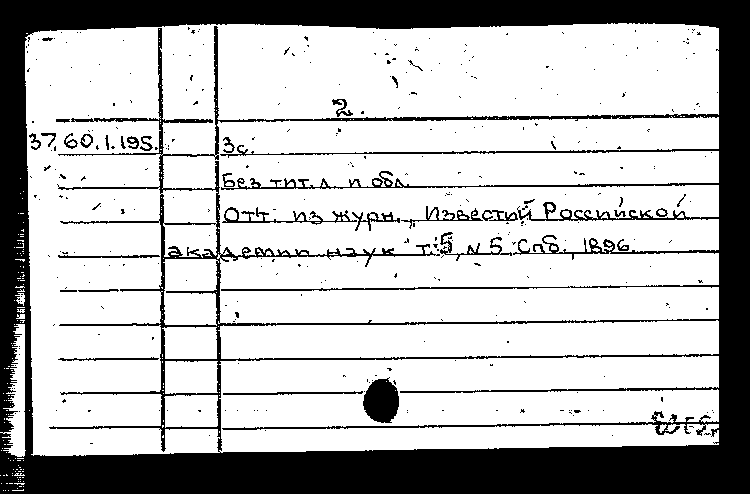 2.
37.60.1.195. 3с.
Без тит. л. и обл.
Отт. из журн. „Известий Российской
академии наук" т. 5, N 5 Спб., 1896.